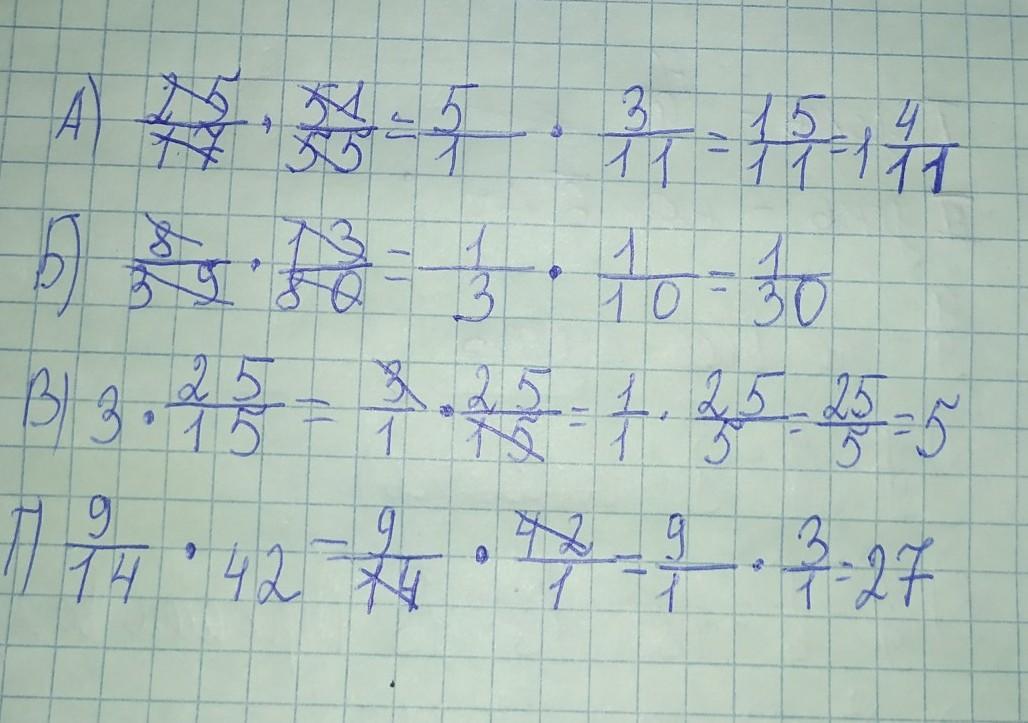 А) 25/17 · 51/55 = 5/1 · 3/11 = 15/11 = 1 4/11
Б) 8/39 · 13/80 = 1/3 · 1/10 = 1/30
В) 3 · 25/15 = 3/1 · 25/15 = 1/1 · 25/5 = 25/5 = 5
Г) 9/14 · 42 = 9/14 · 42/1 = 9/1 · 3/1 = 27